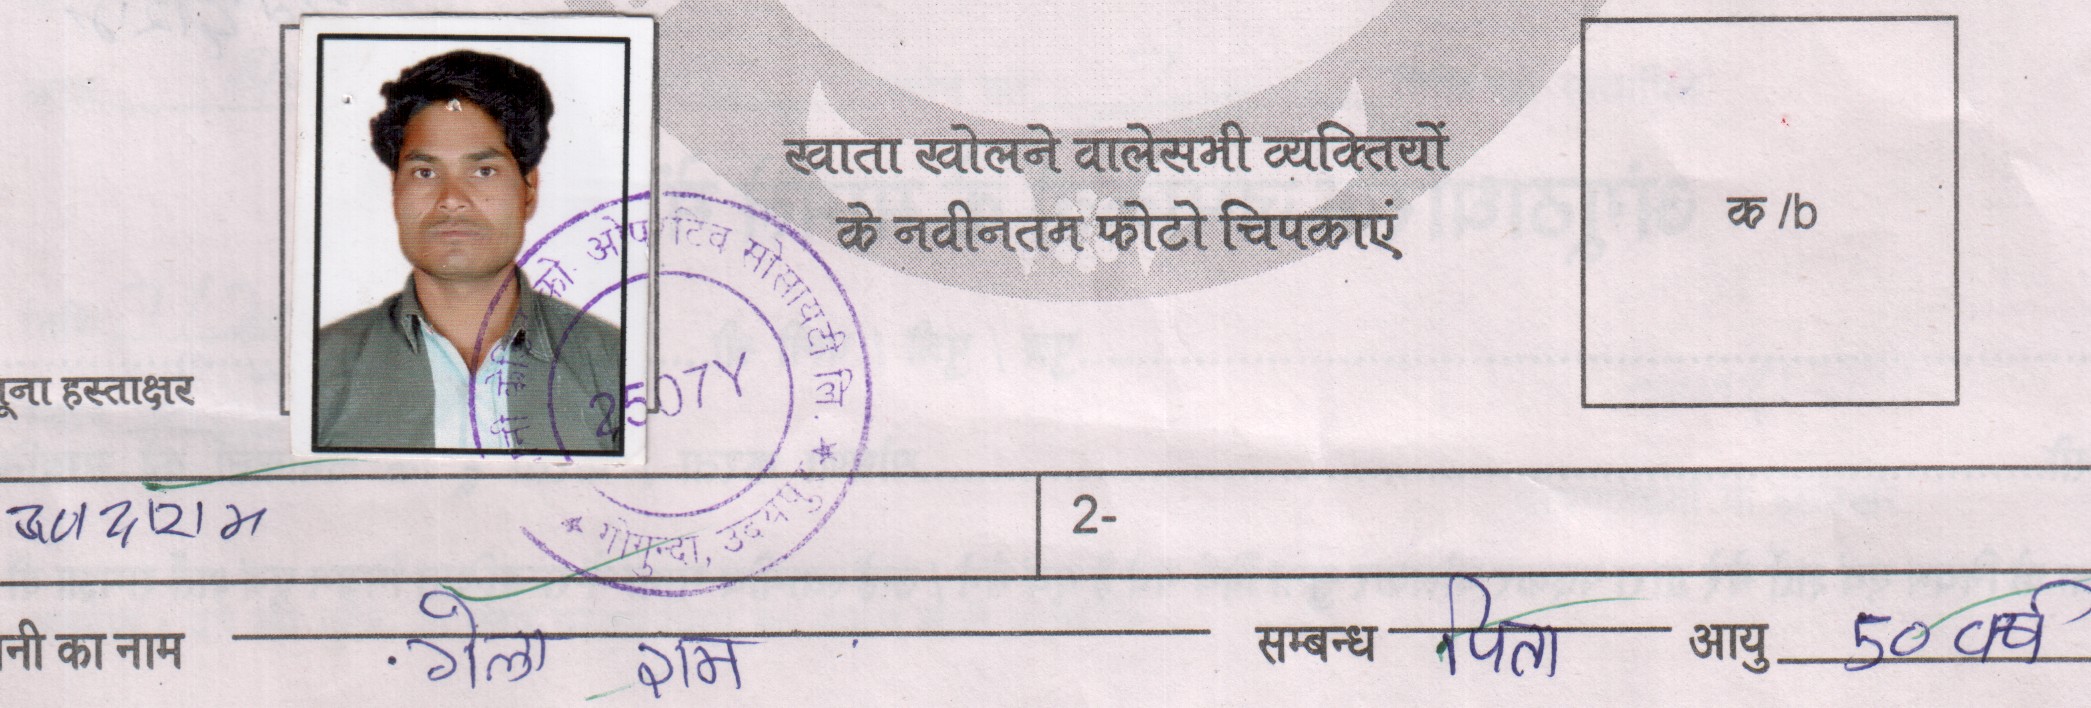 खाता खोलने वालेसभी व्यक्तियों
के नवीनतम फोटो चिपकाएं
क /b
को. ओपरेटिव सोसायटी लि. ★
2507Y
★ गोगुन्दा, उदयपुर
हस्ताक्षर
2-
का नाम गेला राम सम्बन्ध पिता आयु 50 वर्ष